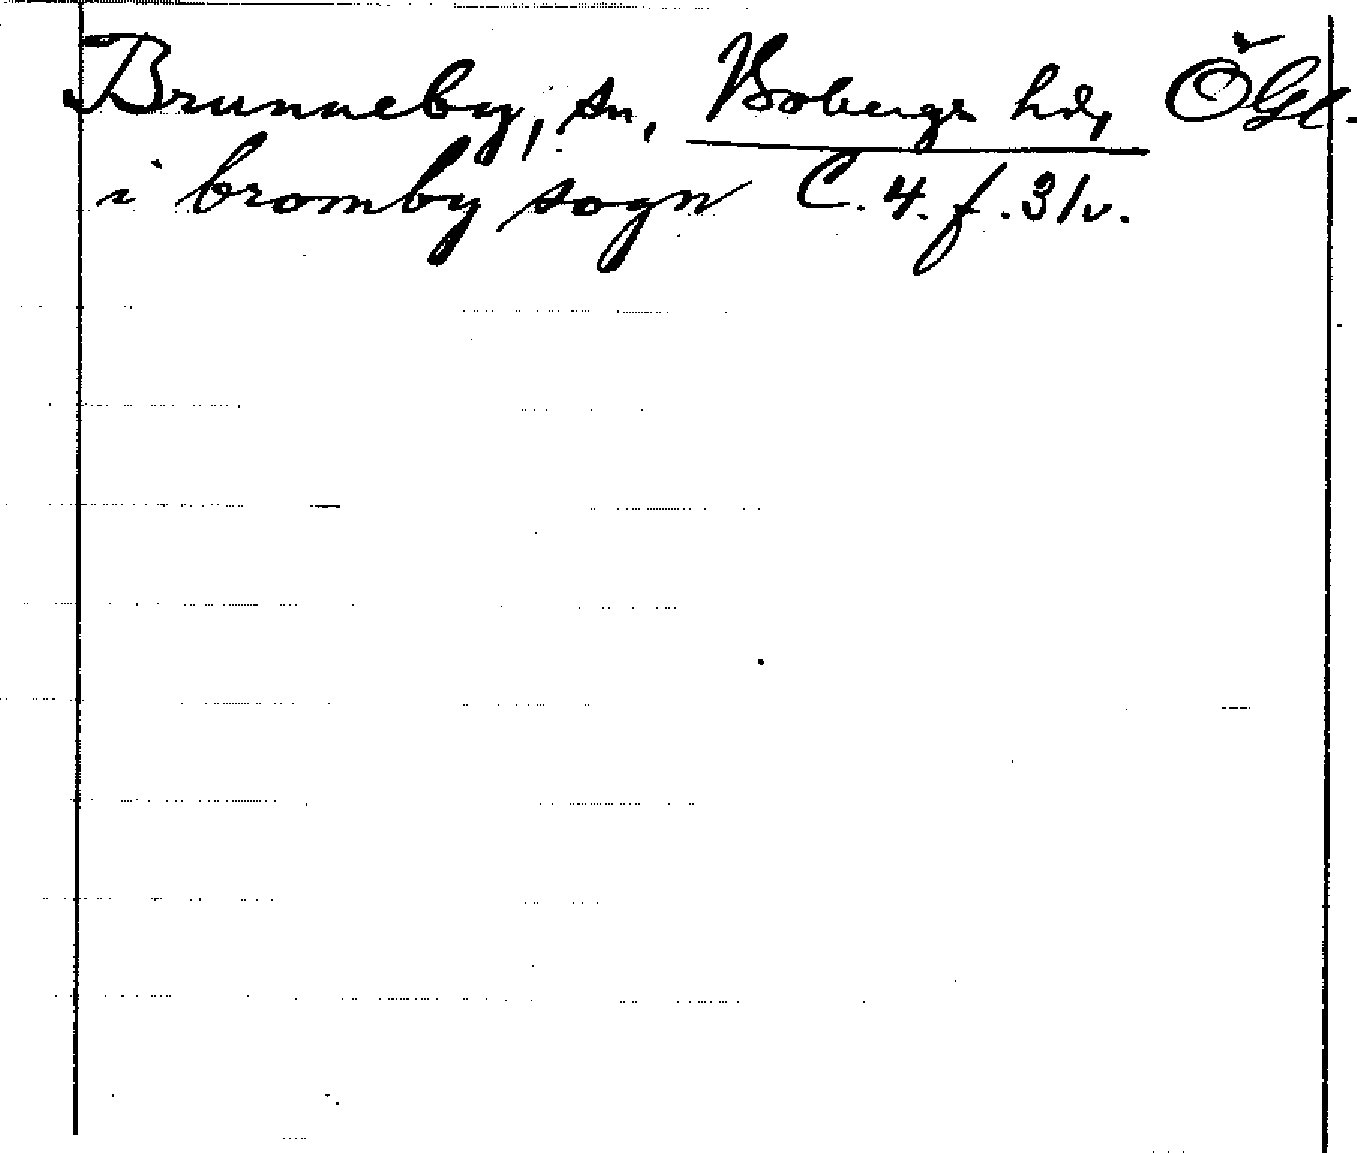 Brunneby, sn, Bobergs hd, ÖGl.
i bromby sogn C. 4. f. 31v.